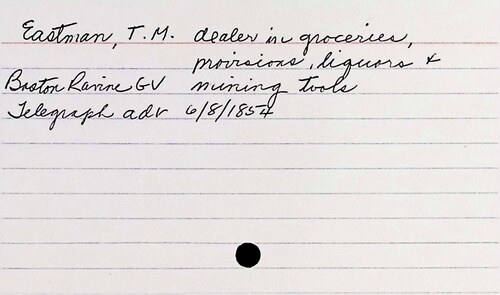 Eastman, T.M. dealer in groceries,
provisions, liquors &
Boston Ravine GV mining tools
Telegraph adv 6/8/1854